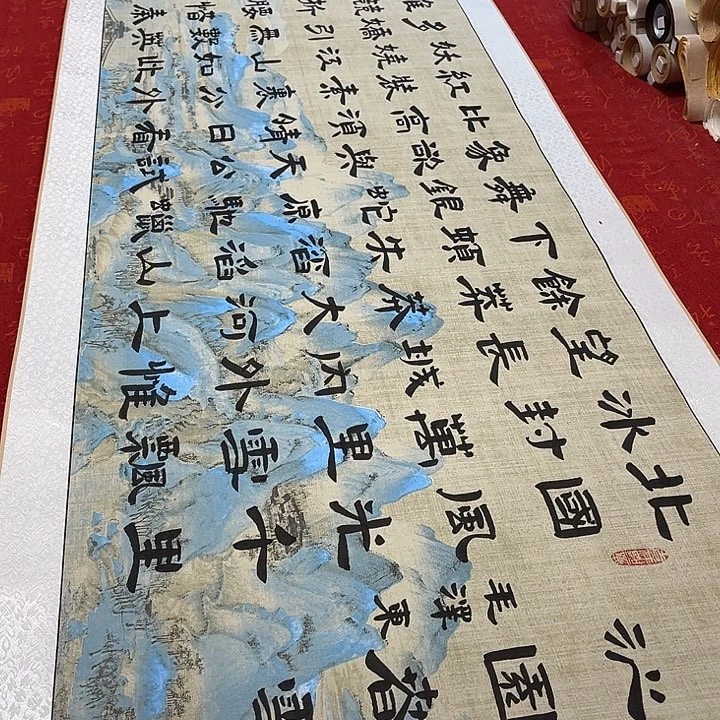 沁園春雪
毛澤東
北國風光千里
冰封萬里雪飄
望長城內外惟
餘莽莽大河上
下頓失滔滔山
舞銀蛇原馳蠟
象欲與天公試
比高須晴日看
紅裝素裹分外
妖嬈江山如此
多嬌引無數英
雄競折腰惜秦